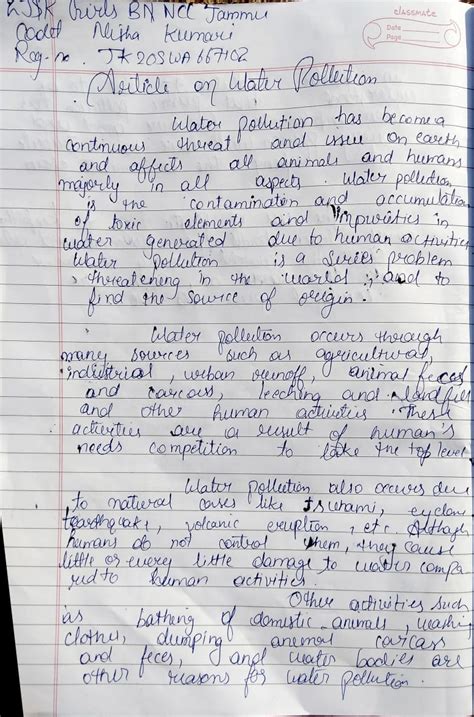 2 J&K Girls BN NCC Jammu
Cadet Nisha Kumari
Reg. no. JK20SWA667102
classmate
Date
Page
Article on Water Pollution
Water pollution has become a
continuous threat and issue on earth
and affects all animals and humans
majorly in all aspects. Water pollution
is the contamination and accumulation
of toxic elements and impurities in
water generated due to human activities
Water pollution is a series problem
threatening in the world and to
find the source of origin.
Water pollution occurs through
many sources such as agricultural,
industrial, urban runoff, animal feces
and carcass, leeching and landfills
and other human activities. These
activities are a result of human's
needs competition to take the top level
Water pollution also occurs due
to natural causes like Tsunami, cyclone
earthquake, volcanic eruption, etc. Although
humans do not control them, they cause
little or every little damage to water compa
red to human activities.
Other activities such
as bathing of domestic animals, washing
clothes, dumping animal carcass
and feces, and water bodies are
other reasons for water pollution.